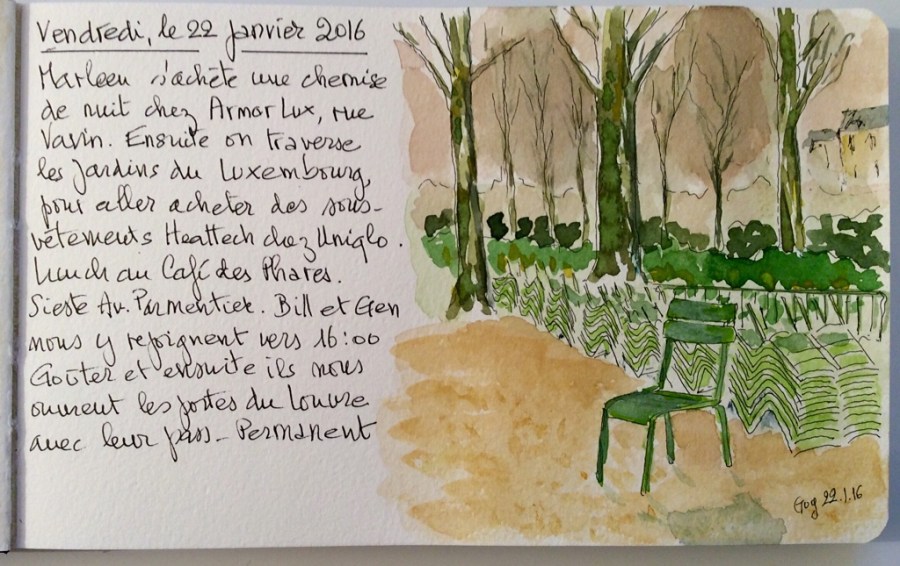 Vendredi, le 22 janvier 2016
Marleen s'achète une chemise
de nuit chez Armor Lux, rue
Vavin. Ensuite on traverse
les Jardins du Luxembourg,
pour aller acheter des sous-
vêtements Heattech chez Uniqlo.
Lunch au Café des Phares.
Sieste Av. Parmentier. Bill et Gen
nous y rejoignent vers 16:00
Goûter et ensuite ils nous
ouvrent les portes du Louvre
avec leur pass-Permanent
Gog 22.1.16